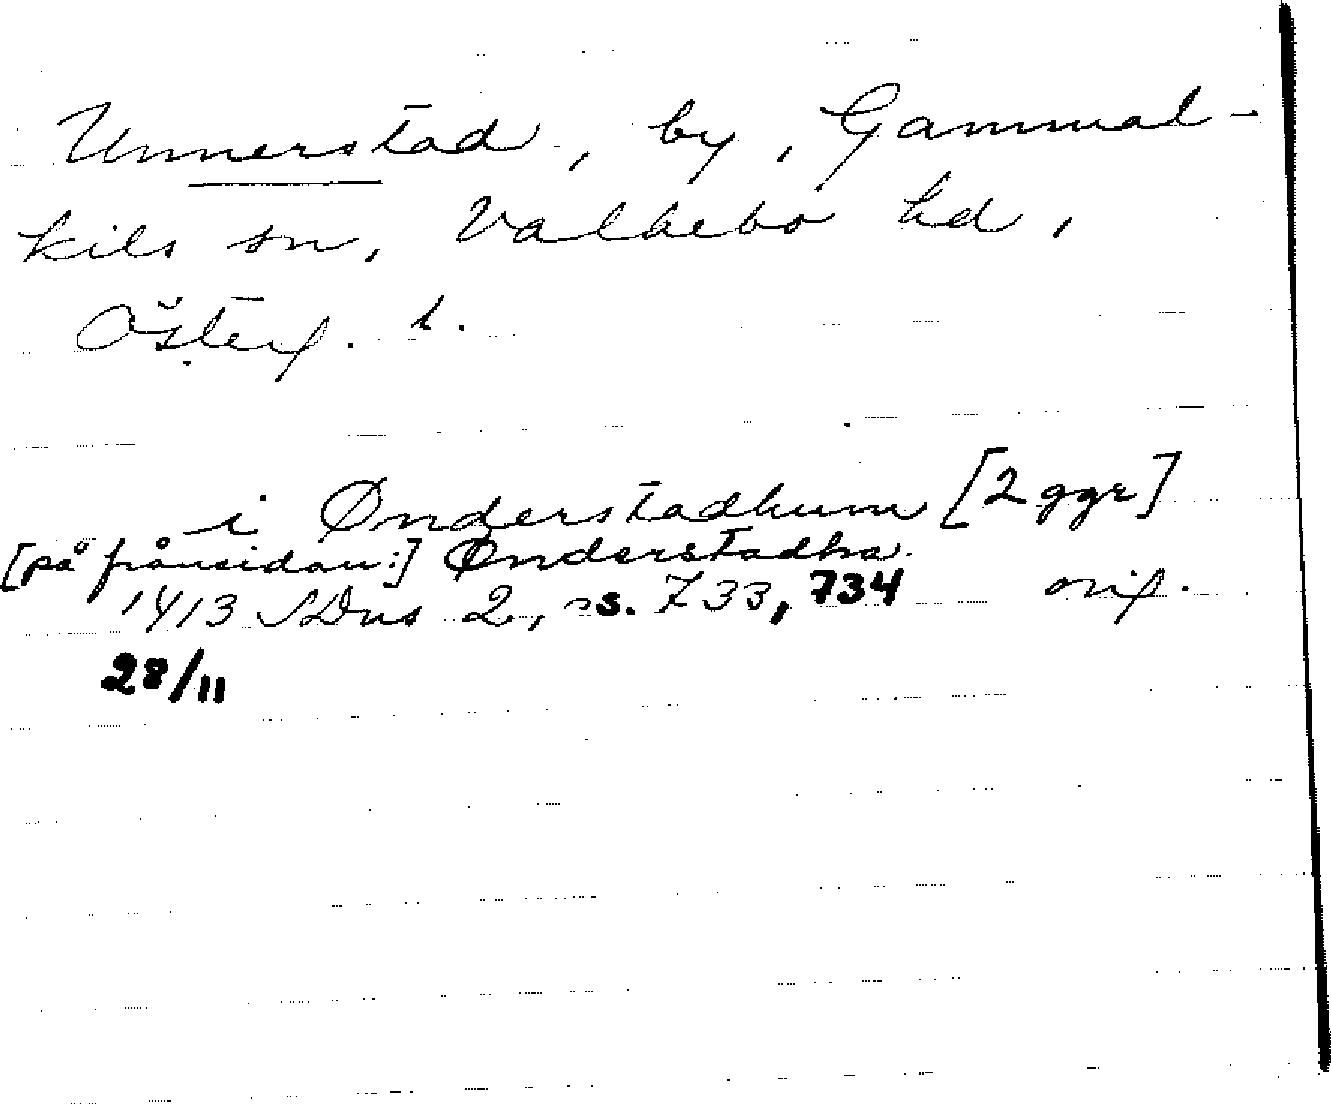 Unnerstad, by, Gammal-
kils sn, Valkebo hd,
Österg. l.
i Ønderstadhum [2 ggr]
[på frånsidan:] Ønderstadha.
1413 SDns 2, ss. 733, 734 orig.
28/11